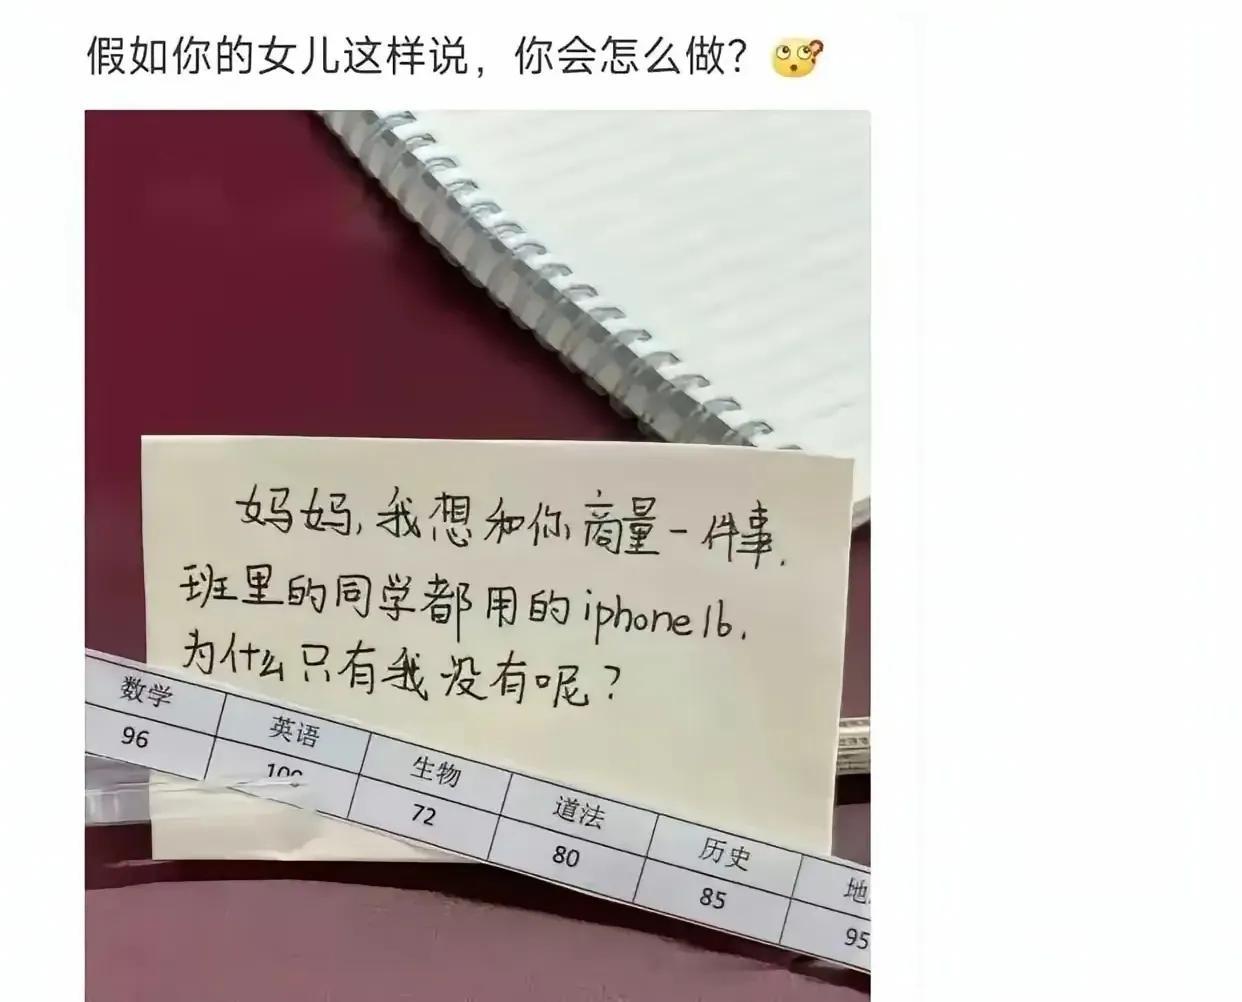 假如你的女儿这样说，你会怎么做？
妈妈，我想和你商量一件事.
班里的同学都用的iphone16.
为什么只有我没有呢？
数学 英语 生物 道法 历史
96 100 72 80 85 95